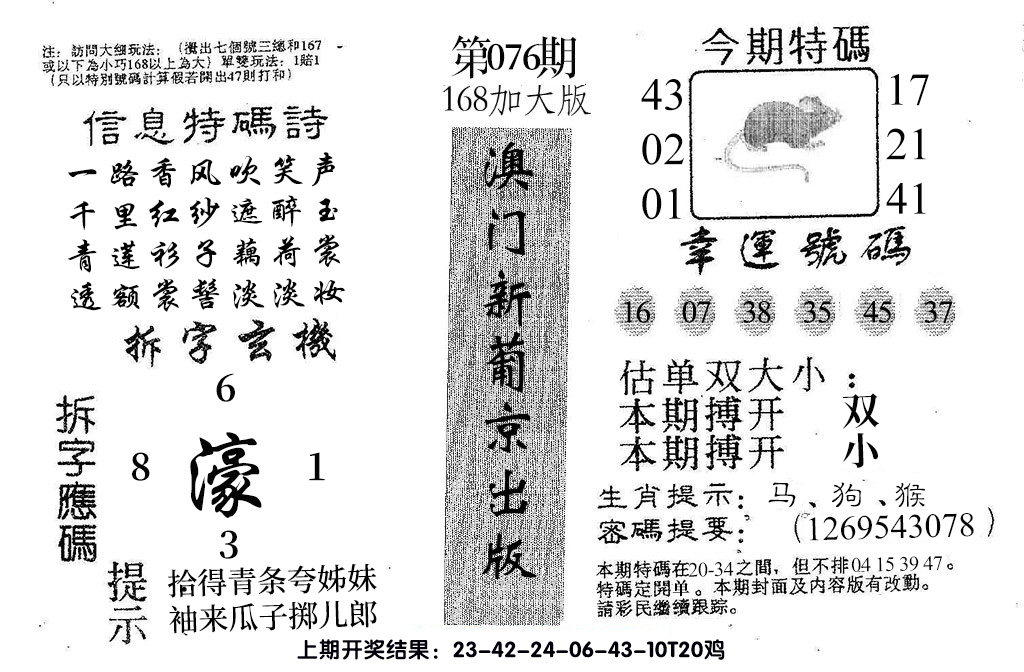 注：訪問大细玩法：（攪出七個號三總和167
或以下為小巧168以上為大）單雙玩法：1賠1
（只以特別號碼計算假若開出47則打和）
信息特碼詩
一路香风吹笑声
千里红纱遮醉玉
青莲衫子藕荷裳
透额裳髻淡淡妆
拆字玄機
6
8 濠 1
3
拆字應碼
提示
拾得青条夸姊妹
袖来瓜子掷儿郎
第076期
168加大版
澳门新葡京出版
今期特碼
43 17
02 21
01 41
幸運號碼
16 07 38 35 45 37
估单双大小：
本期搏开 双
本期搏开 小
生肖提示：马、狗、猴
密碼提要：（1269543078）
本期特碼在20-34之間，但不排04 15 39 47。
特碼定開单。本期封面及内容版有改動。
請彩民繼續跟踪。
上期开奖结果：23-42-24-06-43-10T20鸡